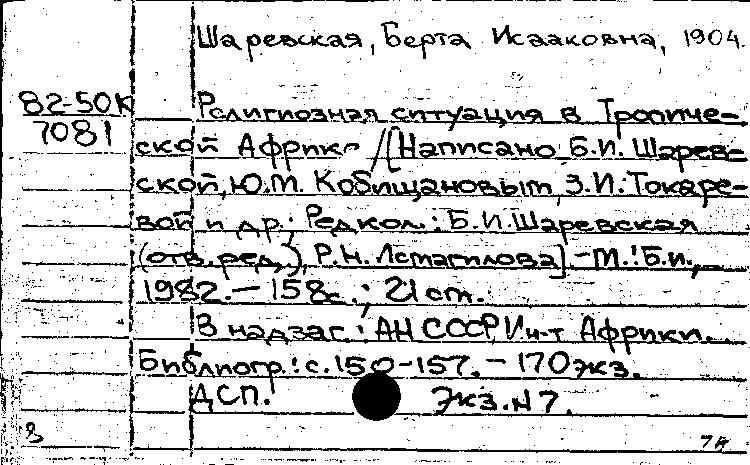 Шаревская, Берта Исааковна, 1904.
82-50К Религиозная ситуация в Тропиче-
7081 ской Африке /[Написано Б.И. Шарев-
ской, Ю.М. Кобищановым, З.И. Токаре-
вой и др.; Редкол.: Б.И. Шаревская
(отв. ред.), Р.Н. Исмагилова].-М.: Б.и.,
1982.-158с.; 21 см.
В надзаг.: АН СССР, Ин-т Африки.
Библиогр.: с.150-157.-170 экз.
ДСП. Экз. N 7.